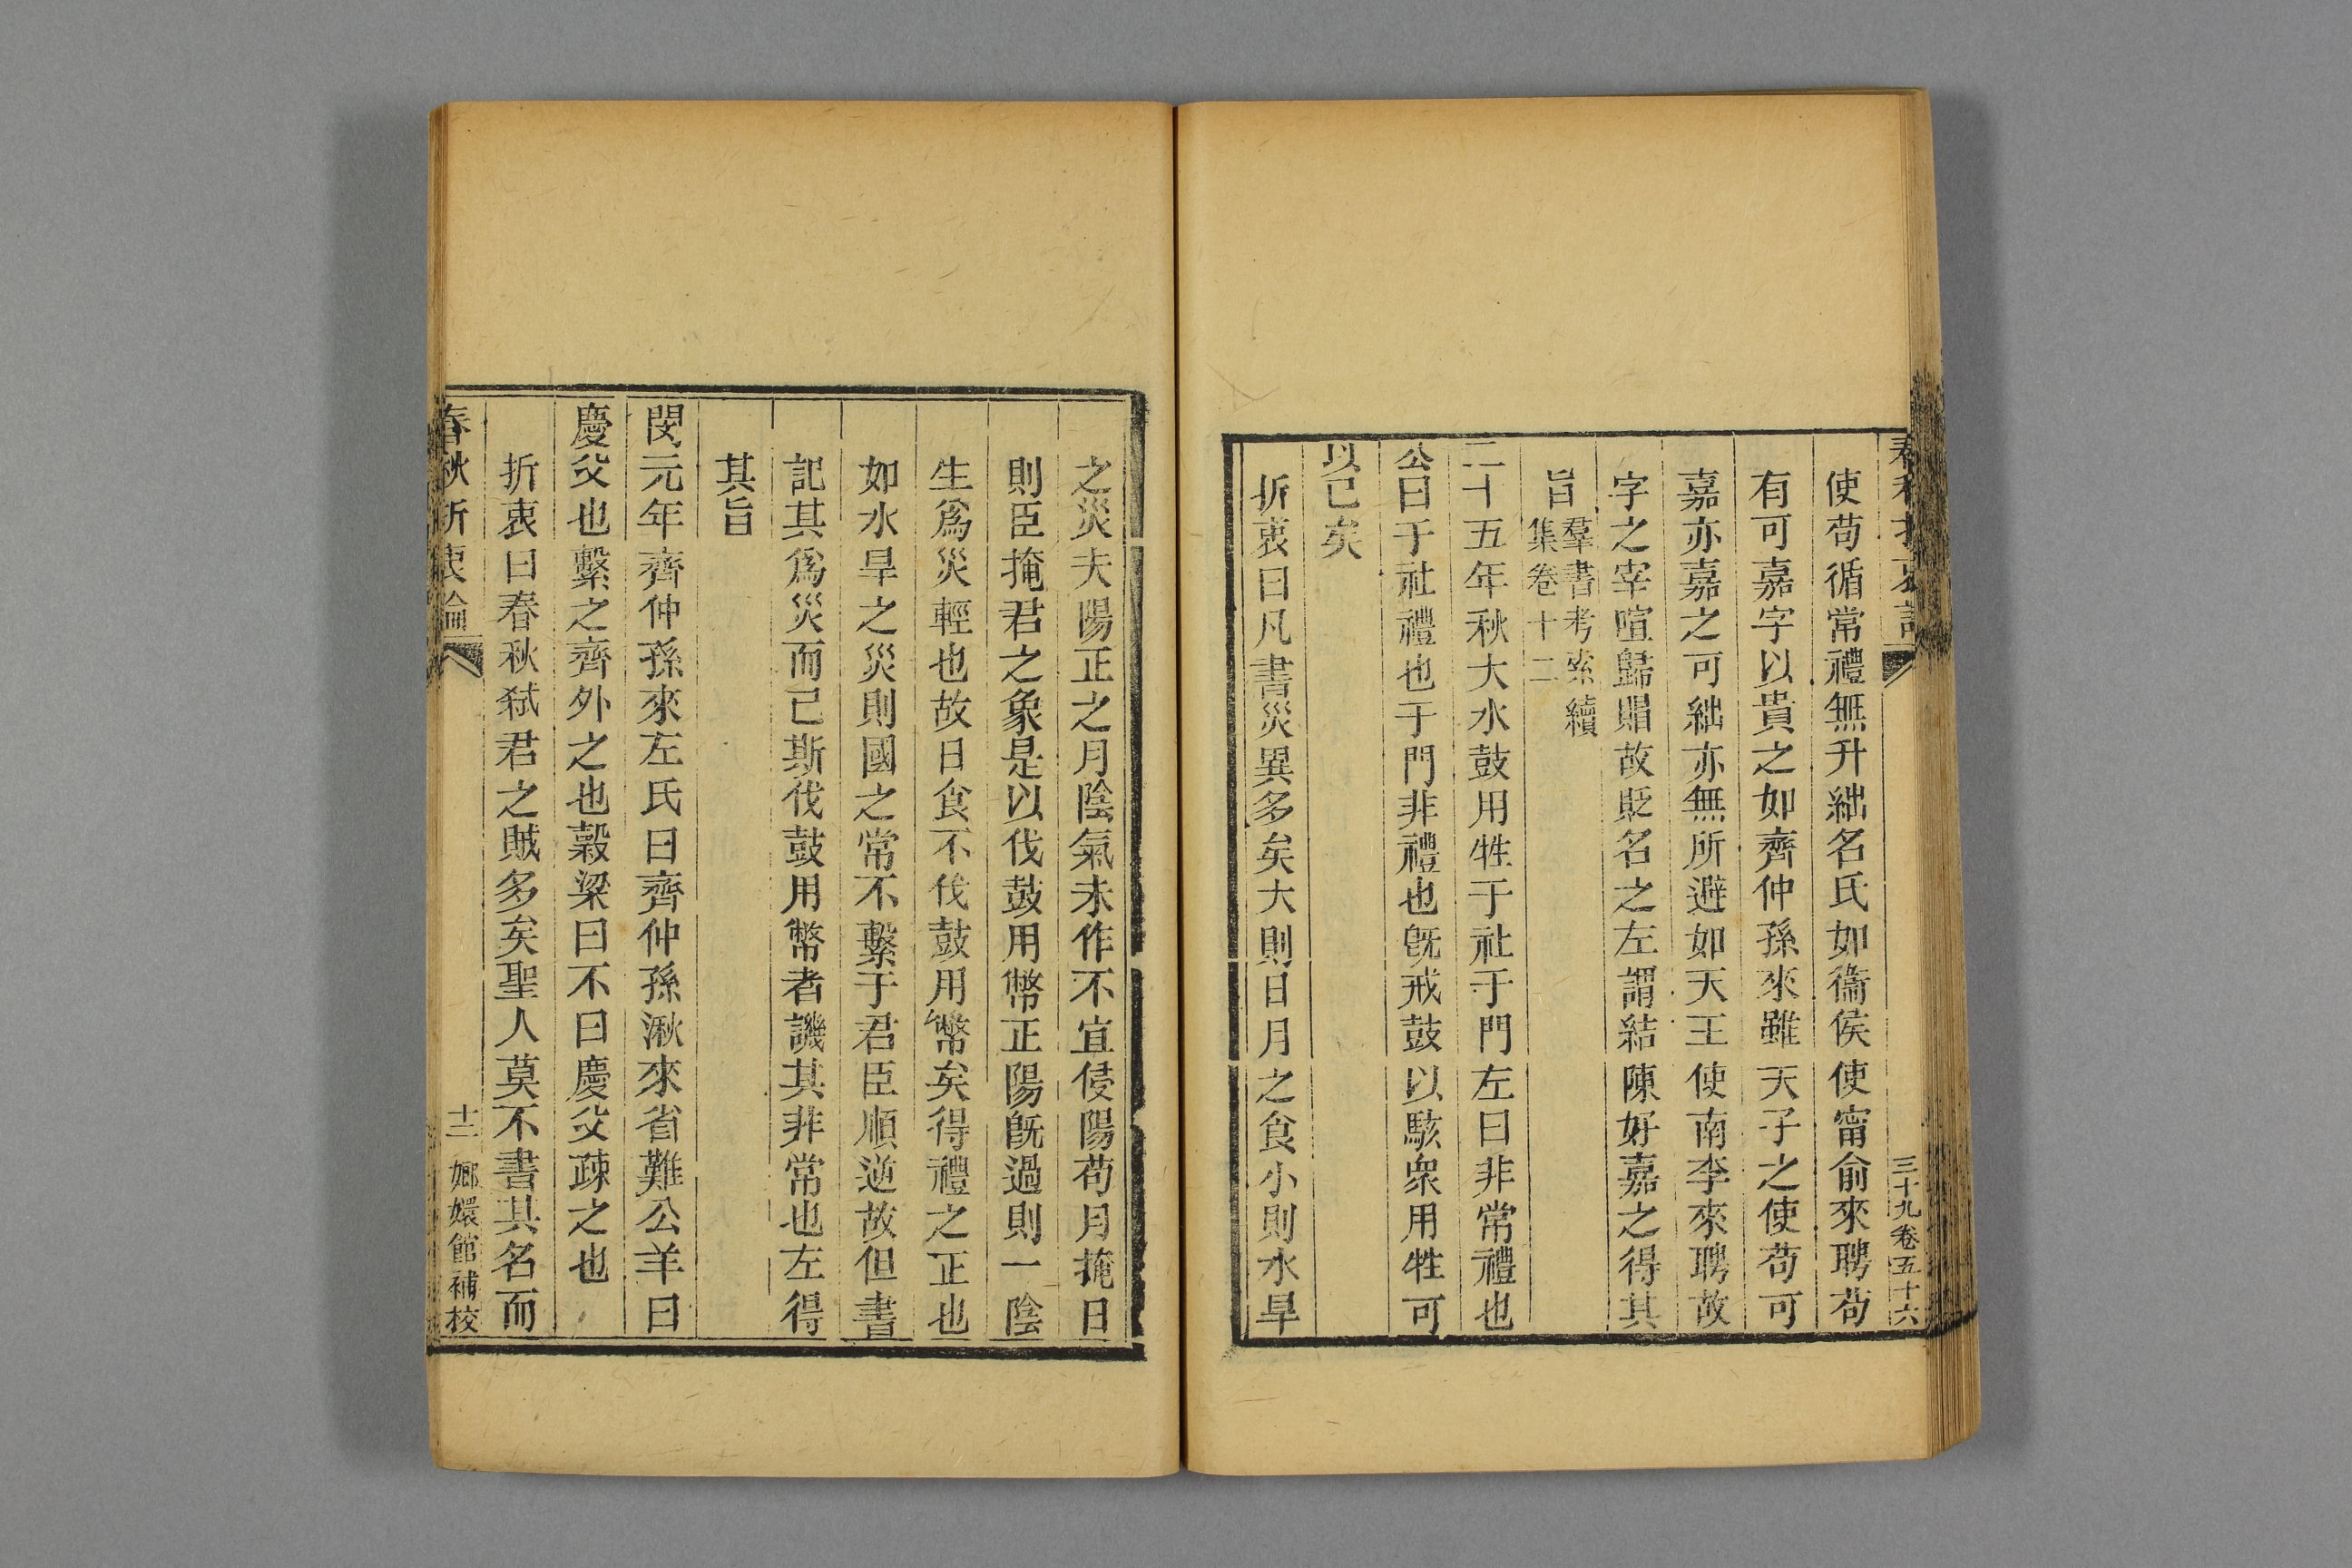 春秋折衷論
三十九卷五十六
使苟循常禮無升絀名氏如衞侯使甯俞來聘苟
有可嘉字以貴之如齊仲孫來雖天子之使苟可
嘉亦嘉之可絀亦無所避如天王使南季來聘故
字之宰咺歸賵故貶名之左謂結陳好嘉之得其
旨羣書考索續
集卷十二
二十五年秋大水鼓用牲于社于門左曰非常禮也
公曰于社禮也于門非禮也旣戒鼓以駭衆用牲可
以已矣
折衷曰凡書災異多矣大則日月之食小則水旱
之災夫陽正之月陰氣未作不宜侵陽苟月掩日
則臣掩君之象是以伐鼓用幣正陽旣過則一陰
生爲災輕也故日食不伐鼓用幣矣得禮之正也
如水旱之災則國之常不繫于君臣順逆故但書
記其爲災而已斯伐鼓用幣者譏其非常也左得
其旨
閔元年齊仲孫來左氏曰齊仲孫湫來省難公羊曰
慶父也繫之齊外之也穀梁曰不曰慶父疎之也
折衷曰春秋弒君之賊多矣聖人莫不書其名而
春秋折衷論
十二
嫏嬛館補校